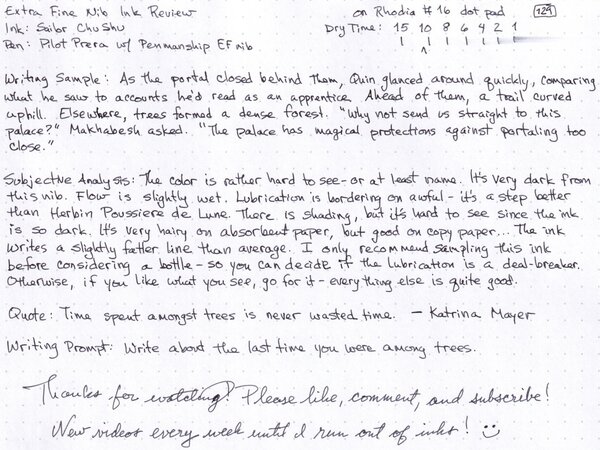 Extra Fine Nib Ink Review on Rhodia #16 dot pad 129
Ink: Sailor Chu Shu Dry Time: 15 10 8 6 4 2 1
Pen: Pilot Prera w/ Penmanship EF nib
Writing Sample: As the portal closed behind them, Quin glanced around quickly, comparing
what he saw to accounts he'd read as an apprentice. Ahead of them, a trail curved
uphill. Elsewhere, trees formed a dense forest. "Why not send us straight to this
palace?" Makhabesh asked. "The palace has magical protections against portaling too
close."
Subjective Analysis: The color is rather hard to see - or at least name. It's very dark from
this nib. Flow is slightly wet. Lubrication is bordering on awful - it's a step better
than Herbin Poussiere de Lune. There is shading, but it's hard to see since the ink
is so dark. It's very hairy on absorbent paper, but good on copy paper... The ink
writes a slightly fatter line than average. I only recommend sampling this ink
before considering a bottle - so you can decide if the lubrication is a deal-breaker.
Otherwise, if you like what you see, go for it - everything else is quite good.
Quote: Time spent amongst trees is never wasted time. - Katrina Mayer
Writing Prompt: Write about the last time you were among trees.
Thanks for watching! Please like, comment, and subscribe!
New videos every week until I run out of inks!